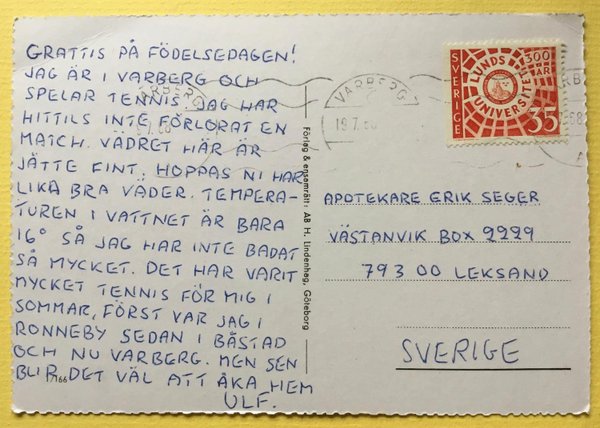 GRATTIS PÅ FÖDELSEDAGEN!
JAG ÄR I VARBERG OCH
SPELAR TENNIS. JAG HAR
HITTILS INTE FÖRLORAT EN
MATCH. VÄDRET HÄR ÄR
JÄTTE FINT. HOPPAS NI HAR
LIKA BRA VÄDER. TEMPERA-
TUREN I VATTNET ÄR BARA
16° SÅ JAG HAR INTE BADAT
SÅ MYCKET. DET HAR VARIT
MYCKET TENNIS FÖR MIG I
SOMMAR, FÖRST VAR JAG I
RONNEBY SEDAN I BÅSTAD
OCH NU VARBERG. MEN SEN
BLIR DET VÄL ATT ÅKA HEM
ULF.
Förlag & ensamrätt: AB H. Lindenhag, Göteborg
VARBERG
19.7.68
SVERIGE
LUNDS
UNIVERSITET
300
ÅR
35
APOTEKARE ERIK SEGER
VÄSTANVIK BOX 2229
793 00 LEKSAND
SVERIGE